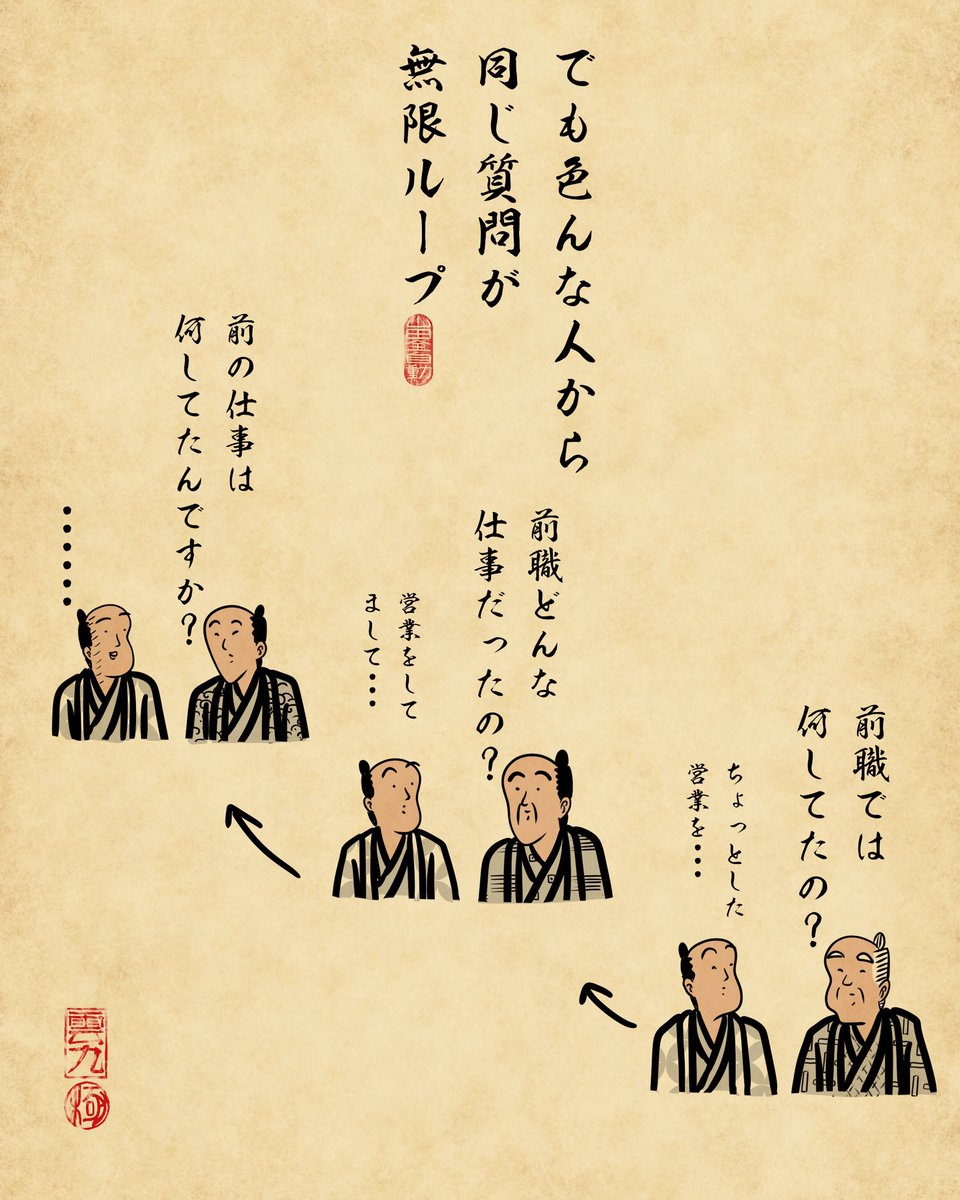 でも色んな人から
同じ質問が
無限ループ
前職では
何してたの？
ちょっとした
営業を・・・
前職どんな
仕事だったの？
営業をして
まして・・・
前の仕事は
何してたんですか？
・・・・・・